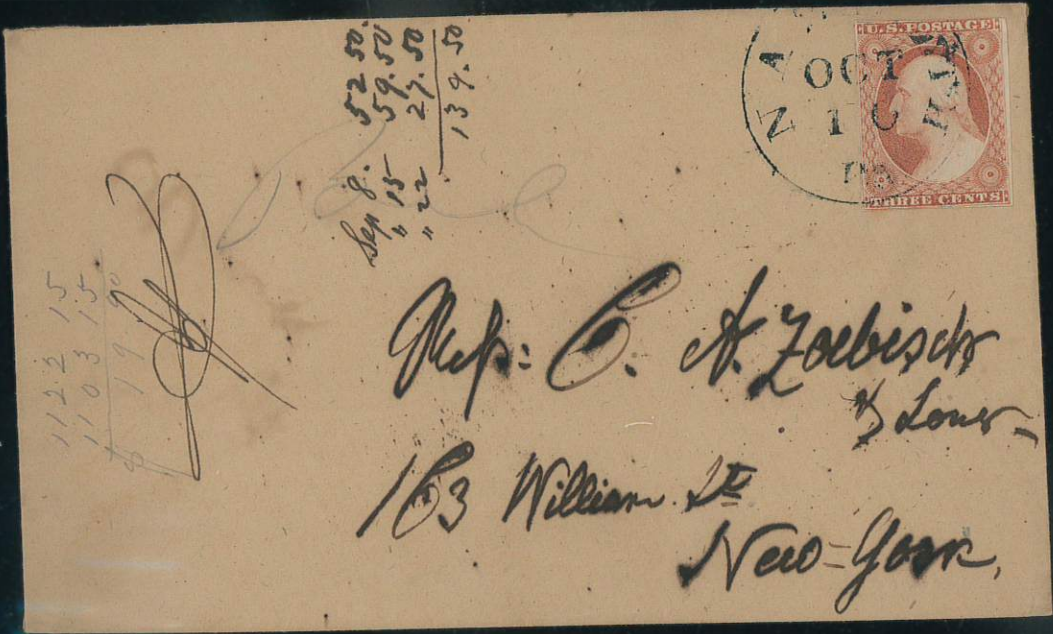 U.S. POSTAGE
THREE CENTS
NA
OCT
Pa
52 50
59.50
27.50
139.50
Sep 8.
" 15
" 22
1122 15
1103 15
$ 19 00
Mess: C. A. Zoebisch
& Sons-
163 William St
New=York,